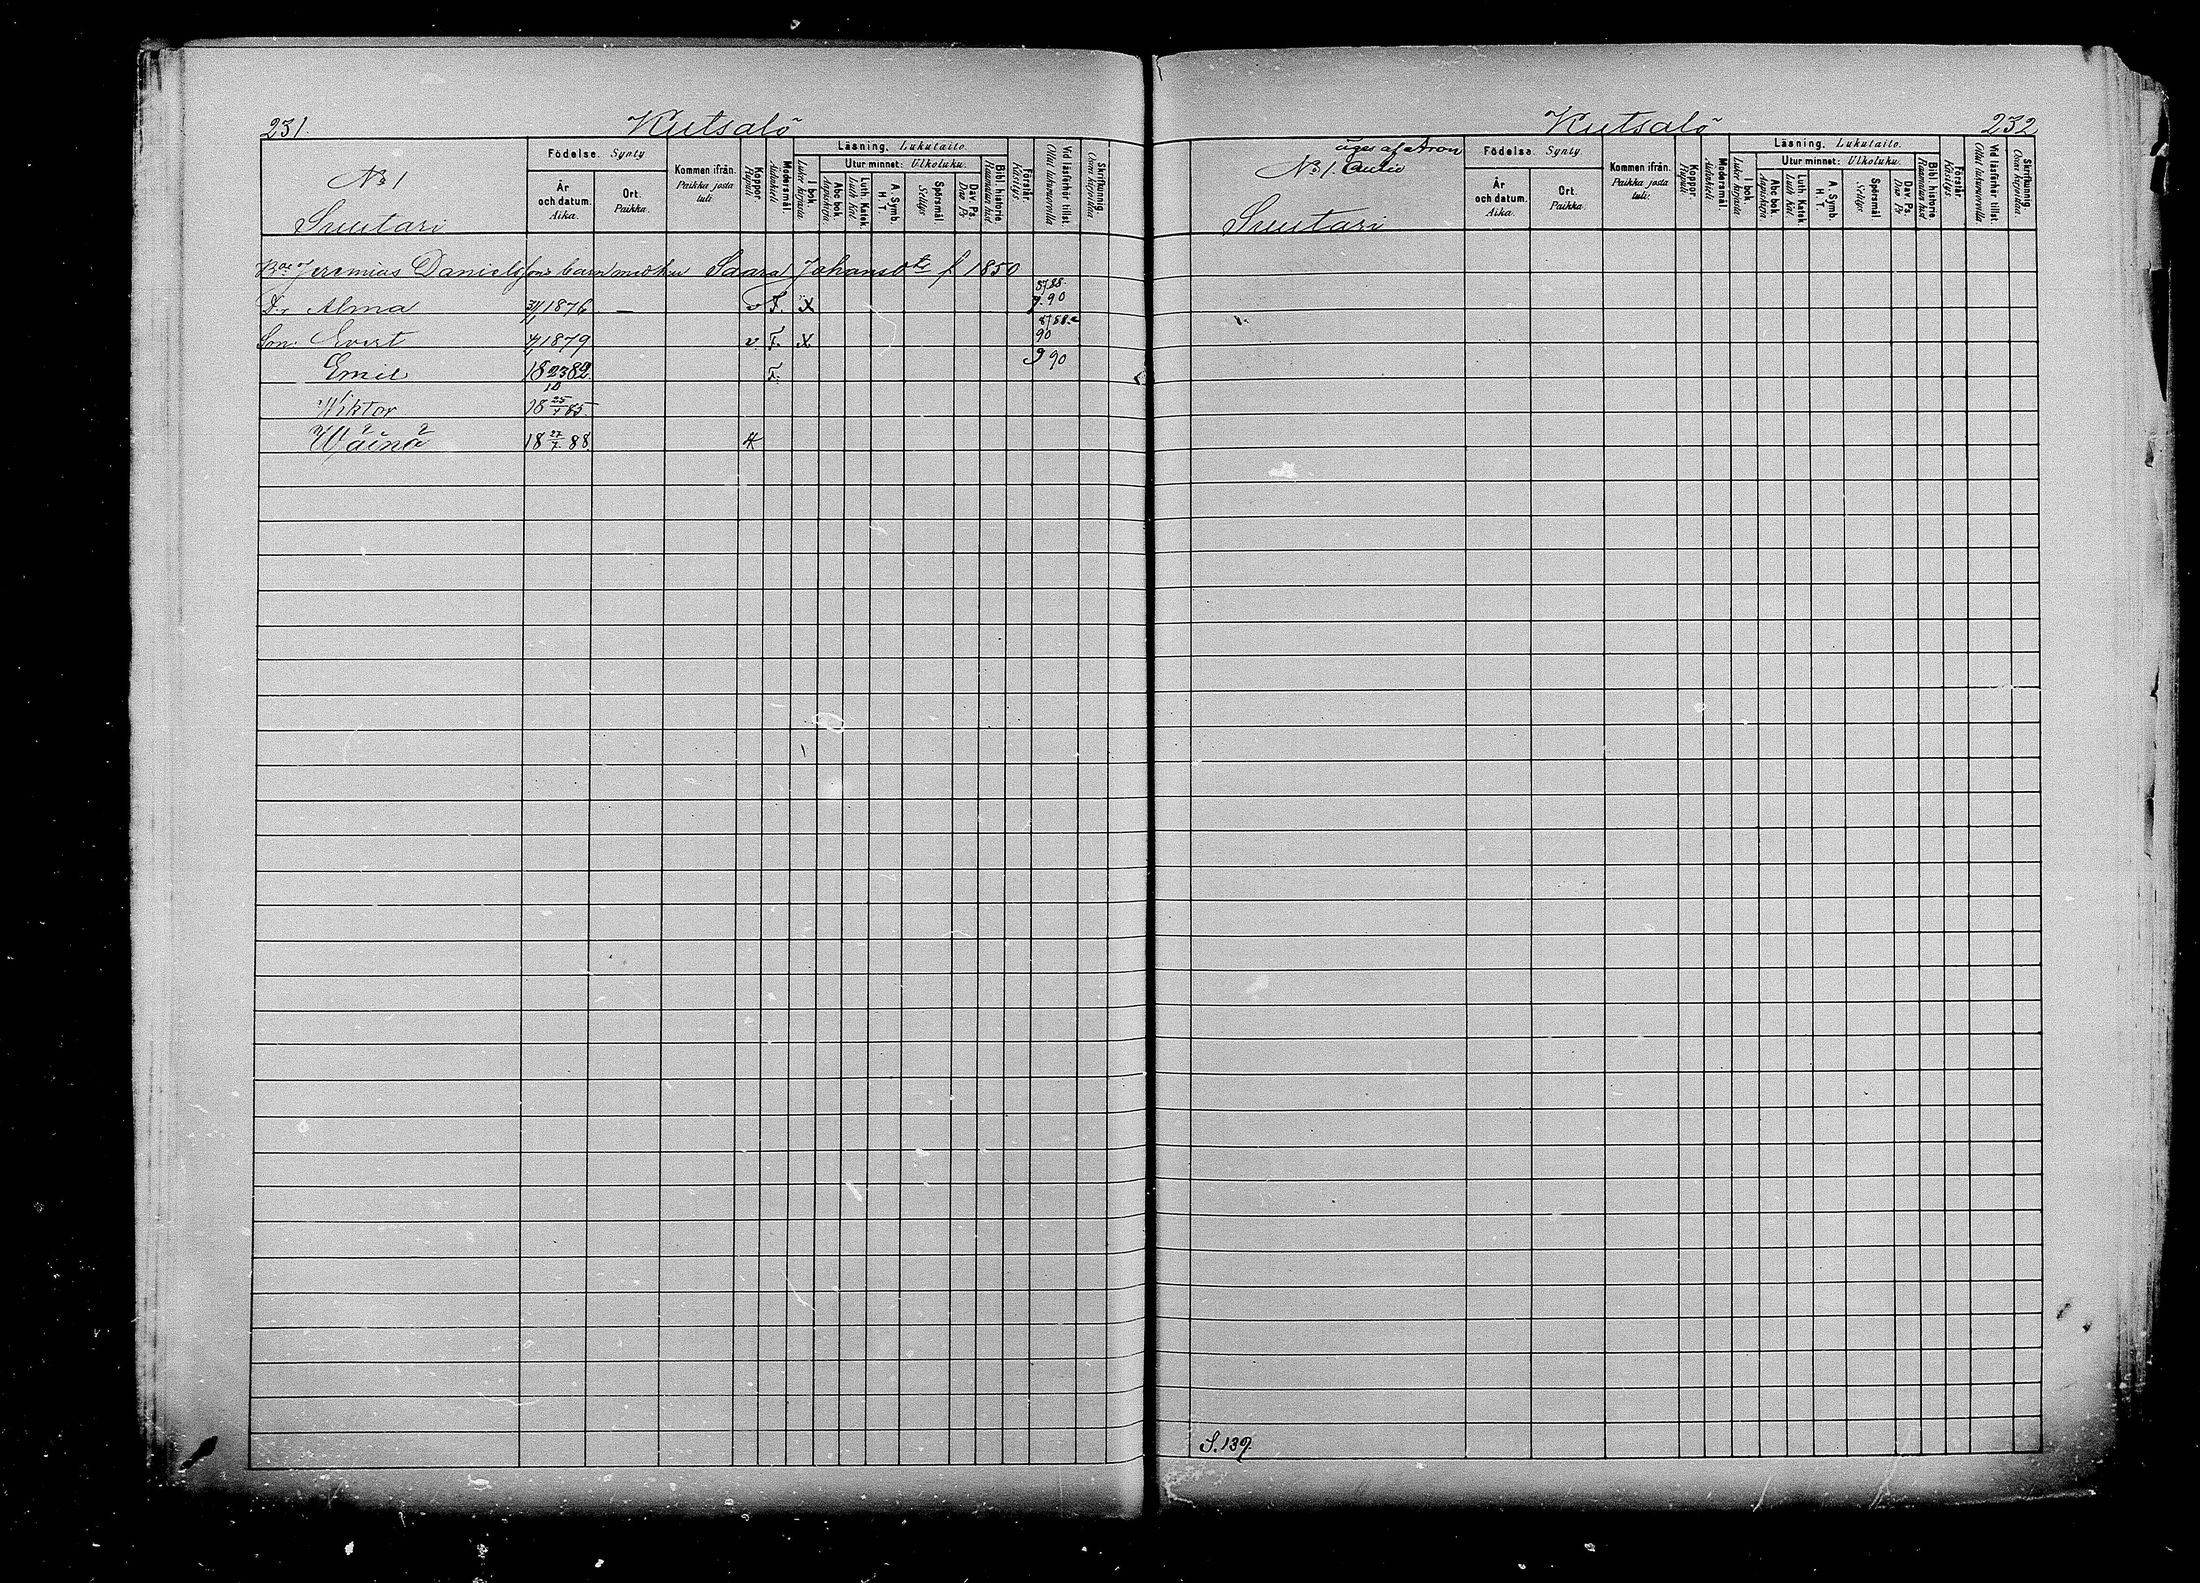 231.
Kutsalö
№ 1
Suutari
Födelse. Synty
År och datum. Aika.
Ort. Paikka.
Kommen ifrån. Paikka josta tuli.
Koppor. Rupuli
Modersmål. Äidinkieli
Läsning. Lukutaito.
I bok. Lukee kirjasta
Utur minnet: Ulkoluku.
Abc bok. Aapiskirja.
Luth. Katek. Luth. Kat.
A. Symb. H. T.
Spörsmål Selitys
Dav. Ps. Dav. Ps
Bibl. historie. Raamatun hist.
Förstår. Käsitys
Vid läsförhör tillst. Ollut lukuwuorolla
Skriftkunnig. Osaa kirjoittaa
Jeremias Danielssons barn med hu Saara Johansdtr f 1850
Dr Alma 1876 — v F. X 87 88. 90
Son: Evert 1879 v. F. X 90
Emil 18 23/10 82. F. 9 90
Wiktor 18 25/1 85
Wäinö 18 27/7 88.
Kutsalö
232
äges af Aron
№ 1. Aulio
Suutari
Födelse. Synty.
År och datum. Aika.
Ort. Paikka.
Kommen ifrån. Paikka josta tuli.
Koppor. Rupuli
Modersmål. Äidinkieli
Läsning. Lukutaito.
I bok. Lukee kirjasta
Utur minnet: Ulkoluku.
Abc bok. Aapiskirja
Luth. Katek. Luth. Kat.
A. Symb. H. T.
Spörsmål Selitys
Dav. Ps. Dav. Ps
Bibl. historie Raamatun hist.
Förstår. Käsitys
Vid läsförhör tillst. Ollut lukuwuorolla
Skriftkunnig. Osaa kirjoittaa
S. 139.